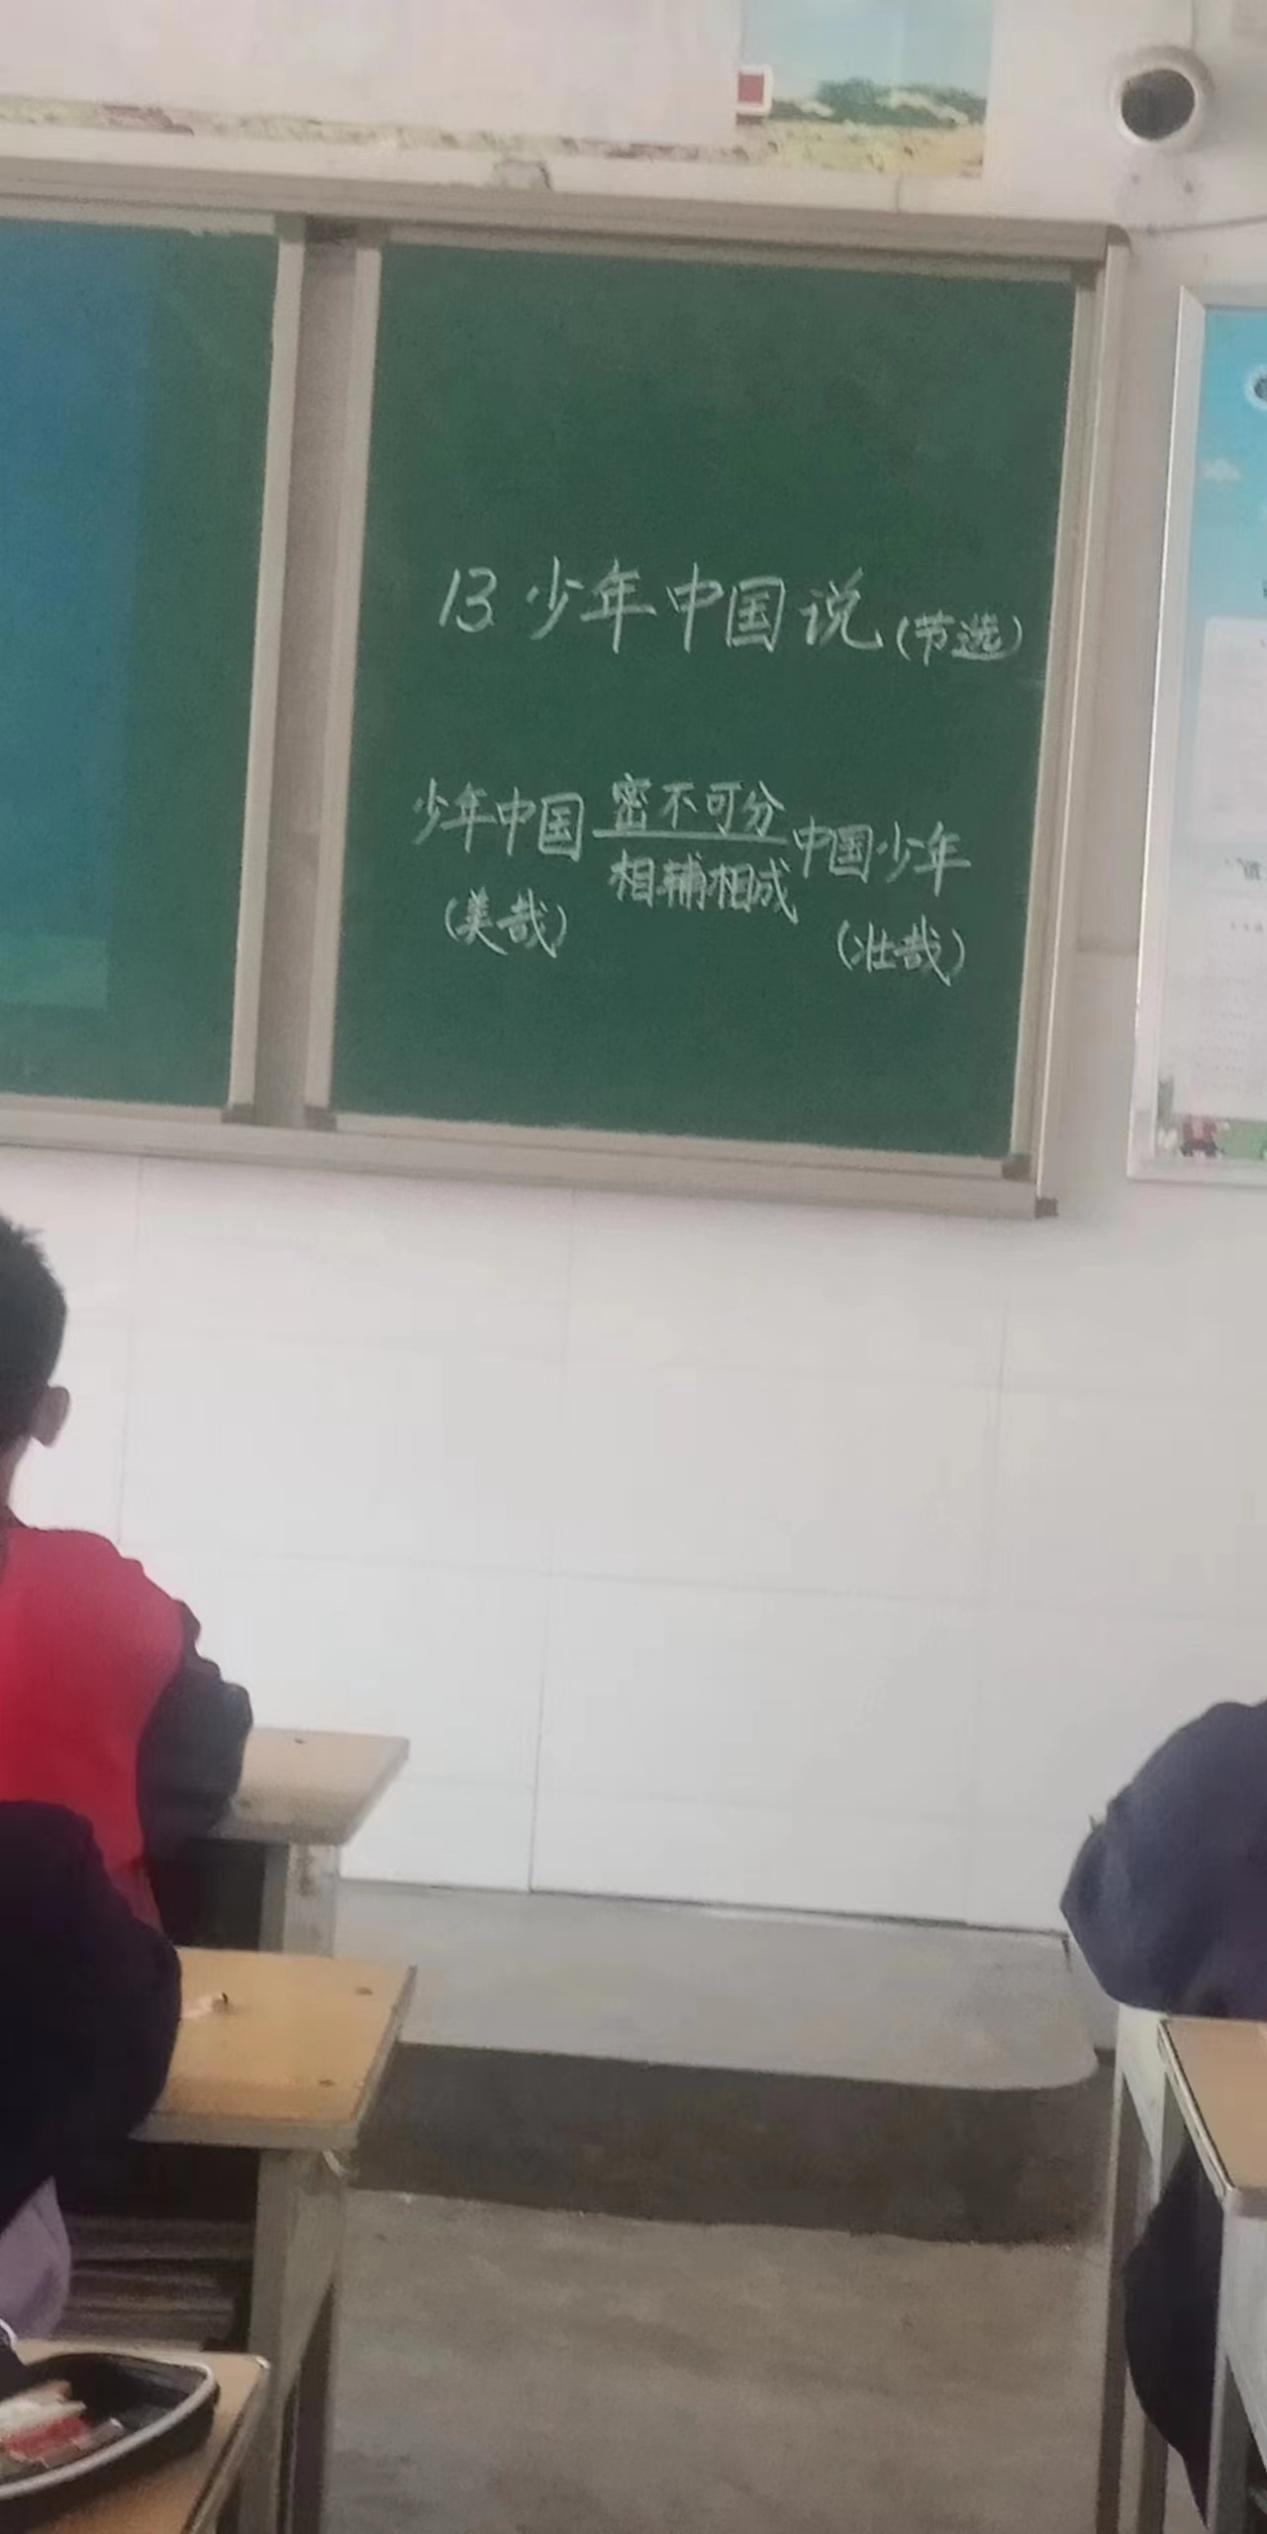 13 少年中国说(节选)
少年中国 密不可分 中国少年
相辅相成
(美哉) (壮哉)